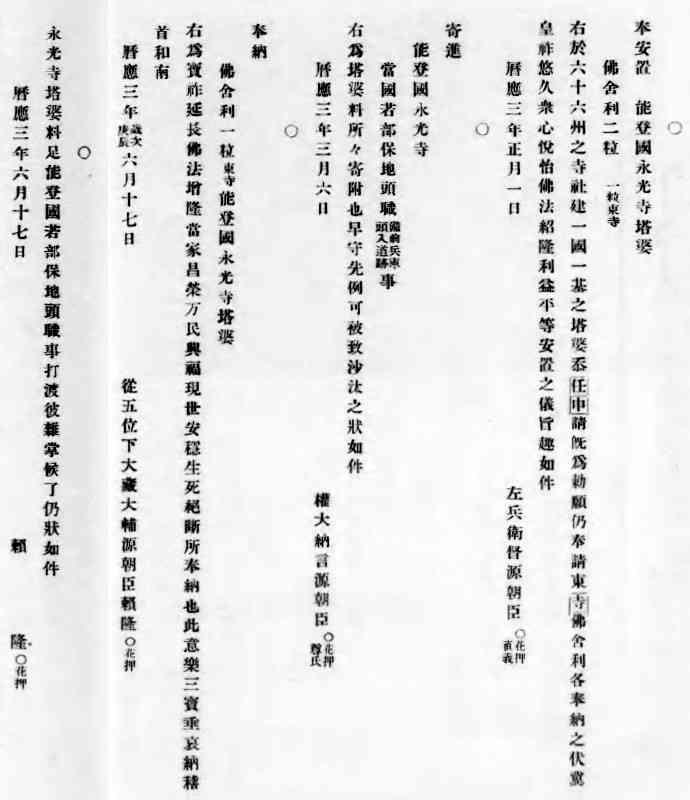 ○
奉安置　能登國永光寺塔婆
佛舍利二粒　一粒東寺
右於六十六州之寺社建一國一基之塔婆忝任申請旣爲勅願仍奉請東寺佛舍利各奉納之伏冀
皇祚悠久衆心悅怡佛法紹隆利益平等安置之儀旨趣如件
曆應三年正月一日
左兵衛督源朝臣○花押直義
○
寄進
能登國永光寺
當國若部保地頭職備前兵庫頭入道跡事
右爲塔婆料所々寄附也早守先例可被致沙汰之狀如件
曆應三年三月六日
權大納言源朝臣○花押尊氏
○
奉納
佛舍利一粒東寺能登國永光寺塔婆
右爲寶祚延長佛法增隆當家昌榮万民興福現世安穩生死絕斷所奉納也此意樂三寶垂哀納稽
首和南
曆應三年歲次庚辰六月十七日
從五位下大藏大輔源朝臣賴隆○花押
○
永光寺塔婆料足能登國若部保地頭職事打渡彼雜掌候了仍狀如件
曆應三年六月十七日
賴　隆○花押